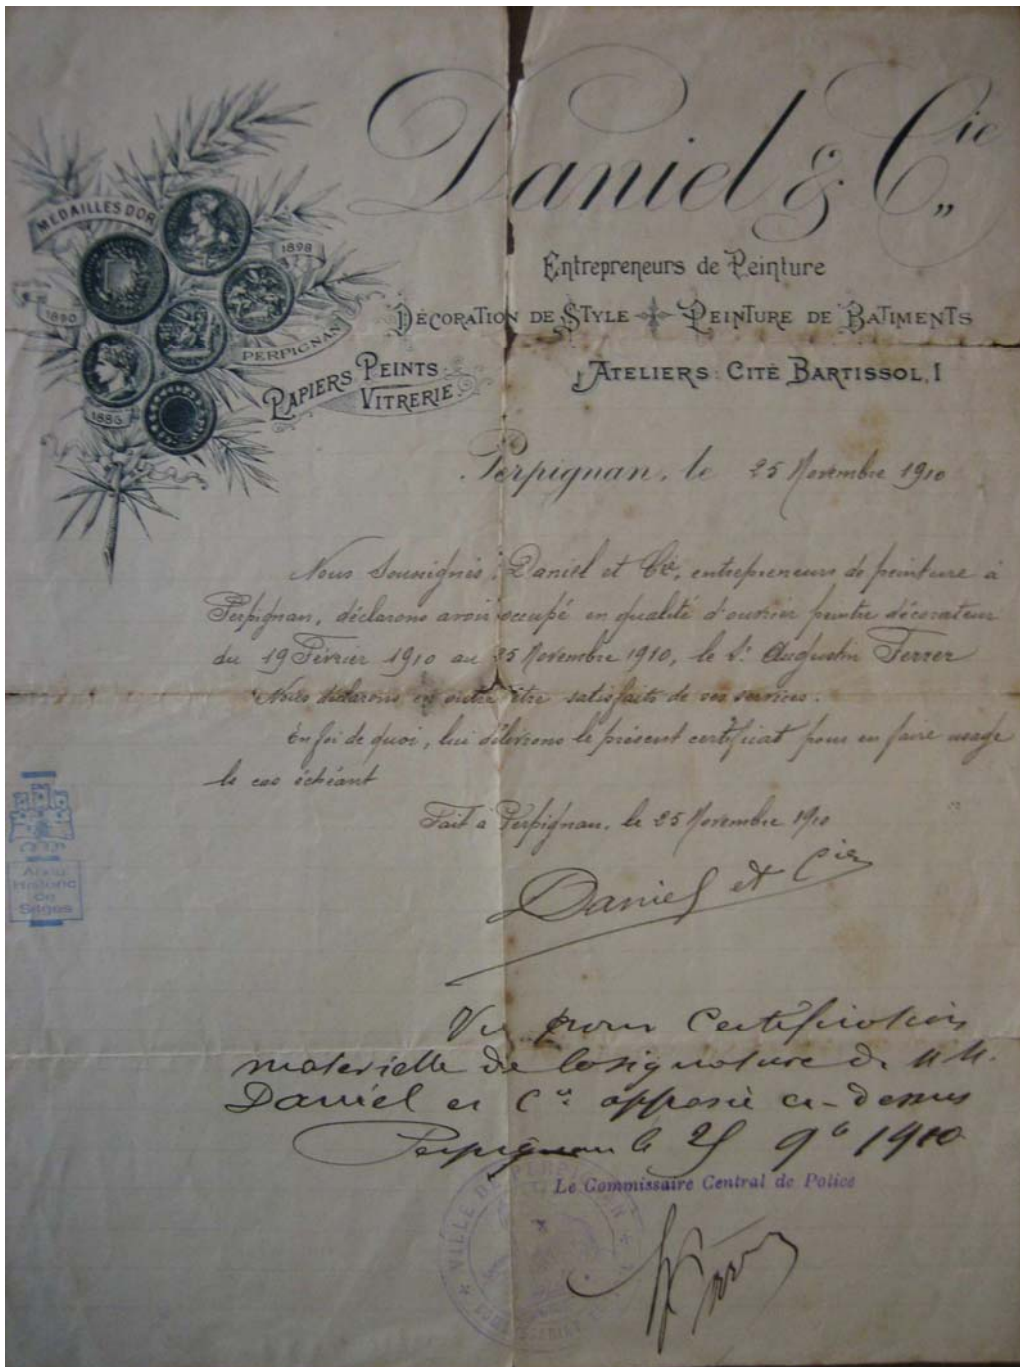 Daniel & Cie
Entrepreneurs de Peinture
DÉCORATION DE STYLE PEINTURE DE BATIMENTS
ATELIERS: CITÉ BARTISSOL, 1
MÉDAILLES D'OR
1898
1890
PERPIGNAN
1886
PAPIERS PEINTS
VITRERIE
Perpignan, le 25 Novembre 1910
Nous Soussignés, Daniel et Cie, entrepreneurs de peinture à
Perpignan, déclarons avoir occupé en qualité d'ouvrier peintre décorateur
du 19 Février 1910 au 25 Novembre 1910, le Sr Augustin Ferrer
Nous déclarons en outre être satisfaits de ses services.
En foi de quoi, lui délivrons le présent certificat pour en faire usage
le cas échéant
Fait à Perpignan, le 25 Novembre 1910
Daniel et Cie
Vu pour Certification
materielle de la signature de MM.
Daniel et Cie apposée ci-dessus
Perpignan le 25 9b 1910
Le Commissaire Central de Police
VILLE DE PERPIGNAN
Arxiu
Històric
de
Sitges